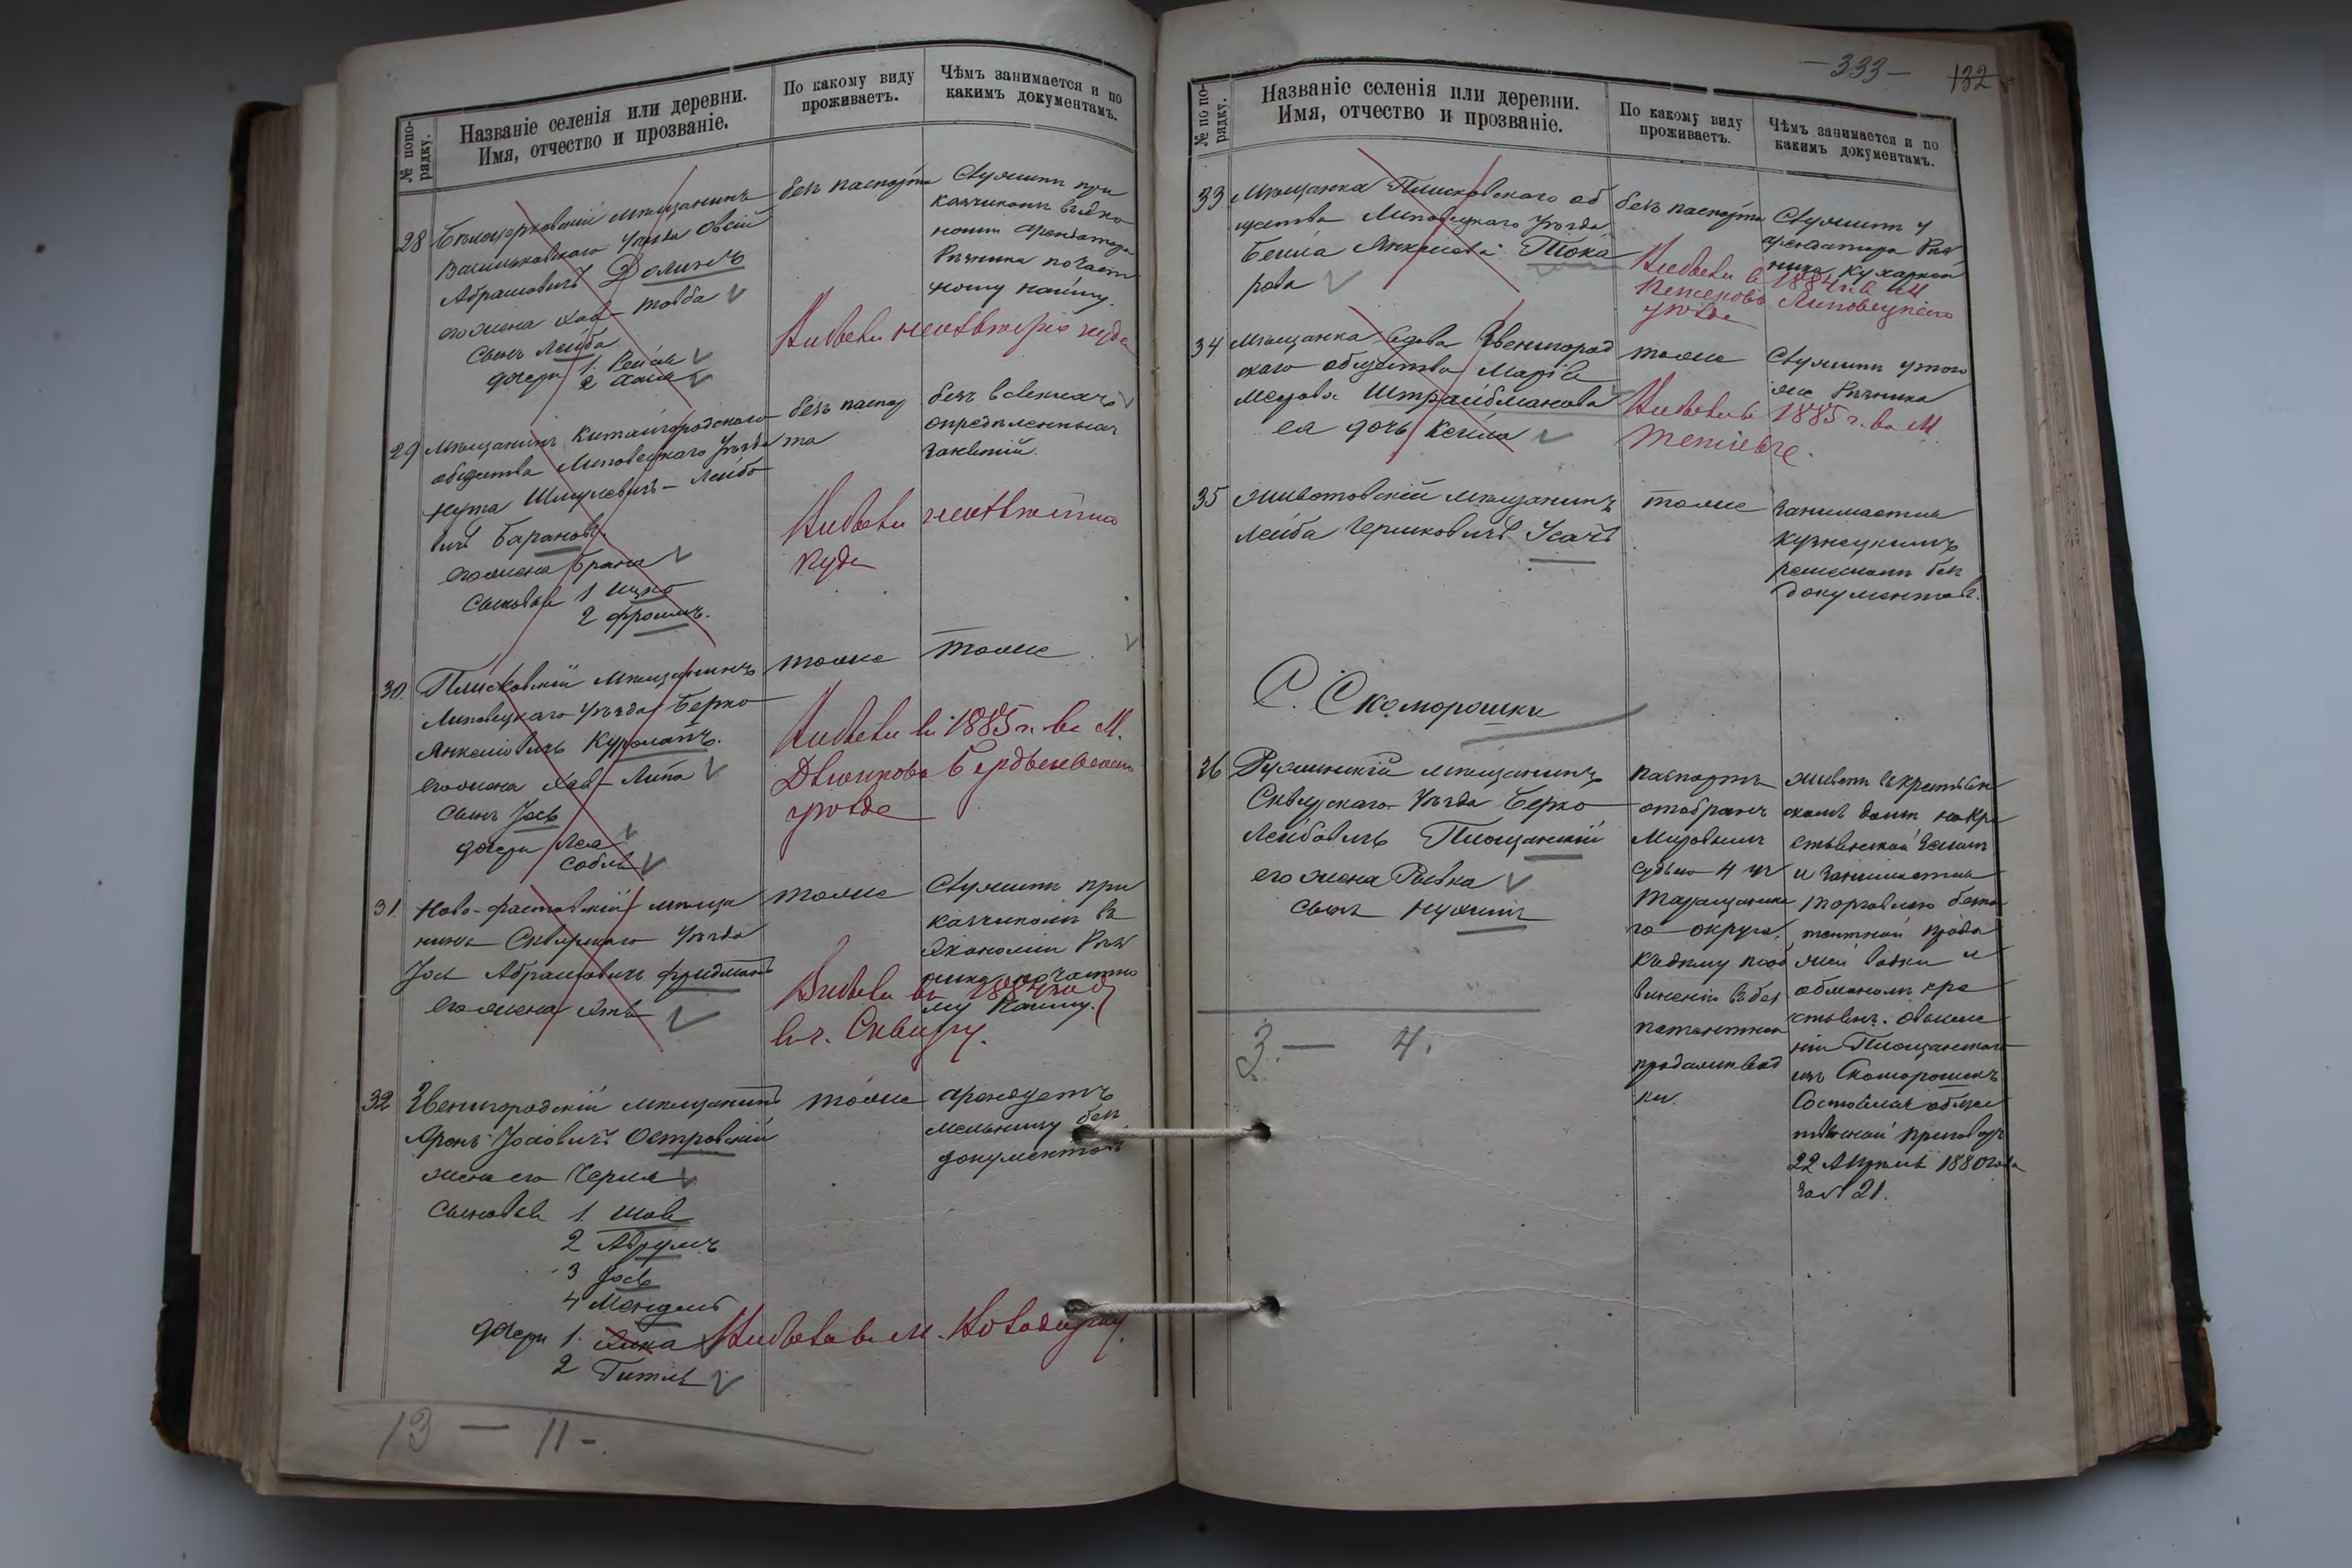 № по по-
рядку.
Названіе селенія или деревни.
Имя, отчество и прозваніе.
По какому виду
проживаетъ.
Чѣмъ занимается и по
какимъ документамъ.
28
Бѣлоцерковскій мѣщанинъ
Васильковскаго Уѣзда Овсій
Абрамовичъ Долинъ
его жена Хая-Товба
сынъ Лейба
дочери 1. Рейзя
2
безъ паспорта
Служитъ при
кащикомъ въ эко
номіи арендатора
Рѣзника по част
ному найму.
Выбыли неизвѣстно куда
29
Мѣщанинъ Китайгородского
общества Липовецкаго Уѣзда
Нута Шмулевичъ-Лейбо
вичъ Барановъ.
его жена Брана
сыновья 1 Ицко
2 Фроимъ.
безъ паспор
та
безъ всякихъ
опредѣленныхъ
занятій.
Выбыли неизвѣстно
куда
30.
Плисковскій мѣщанинъ
Липовецкаго Уѣзда Берко
Янкеліовичъ Куроланъ.
его жена Хая-Либа
сынъ Іось
дочери Лея
Собля
тоже
тоже
Выбыли въ 1885 г. въ М.
Дзюнково Бердичевскаго
уѣзда
31.
Ново-фастовскій мѣща
нинъ Сквирскаго Уѣзда
Іос Абрамовичъ Фридманъ
его жена
тоже
Служитъ при
кащикомъ въ
экономіи Рѣз
ника по частно
му найму.
Выбыли въ 1884 году
въ г. Сквиру.
32
Звенигородскій мѣщанинъ
Аронъ Іосіовичъ Островскій
жена его Черля
сыновья 1. Шая
2 Абрумъ
3 Іось
4 Мендель
дочери 1. Хика
2 Гитля
тоже
арендуетъ
мельницу безъ
документовъ
Выбыла въ М. Новогиргу.
13 — 11 -.
- 333 -
132
№ по по-
рядку.
Названіе селенія или деревни.
Имя, отчество и прозваніе.
По какому виду
проживаетъ.
Чѣмъ занимается и по
какимъ документамъ.
33
Мѣщанка Плисковского об
щества Липовецкаго Уѣзда
Бейла Янкелева Тока
рова
безъ паспорта
Служитъ у
арендатора Рѣз
ника кухаркой
Выбыли въ 1884 г. въ М
Липовецкаго
уѣзда
34
Мѣщанка вдова Звенигород
ского общества Марія
Меерова Штрайбманова
ея дочь Кейла
тоже
Служитъ у того
же Рѣзника
Выбыли въ 1885 г. въ М.
Тетіевѣ.
35
Животовскій мѣщанинъ
Лейба Гершковичъ Усачъ
тоже
занимается
кузнецкимъ
ремесломъ безъ
документовъ.
С. Скоморошки
36
Ружинскій мѣщанинъ
Сквирскаго Уѣзда Берко
Лейбовичъ Площанскій
его жена Рывка
сынъ Нухимъ
паспортъ
отобранъ
Мировымъ
судьею 4 уч
Таращанска
го округа,
къ дѣлу по об
виненію въ без
патентной
продажи вод
ки.
живетъ въ крестьян
скомъ домѣ на кре
стьянской землѣ
и занимается
торговлею безпа
тентной прода
жей водки и
обманомъ кре
стьянъ. О высел
ніи Площанскаго
изъ Скоморошекъ
состоялся общес
твенный приговоръ
22 Апрѣля 1880 года
за № 21.
3. — 4.